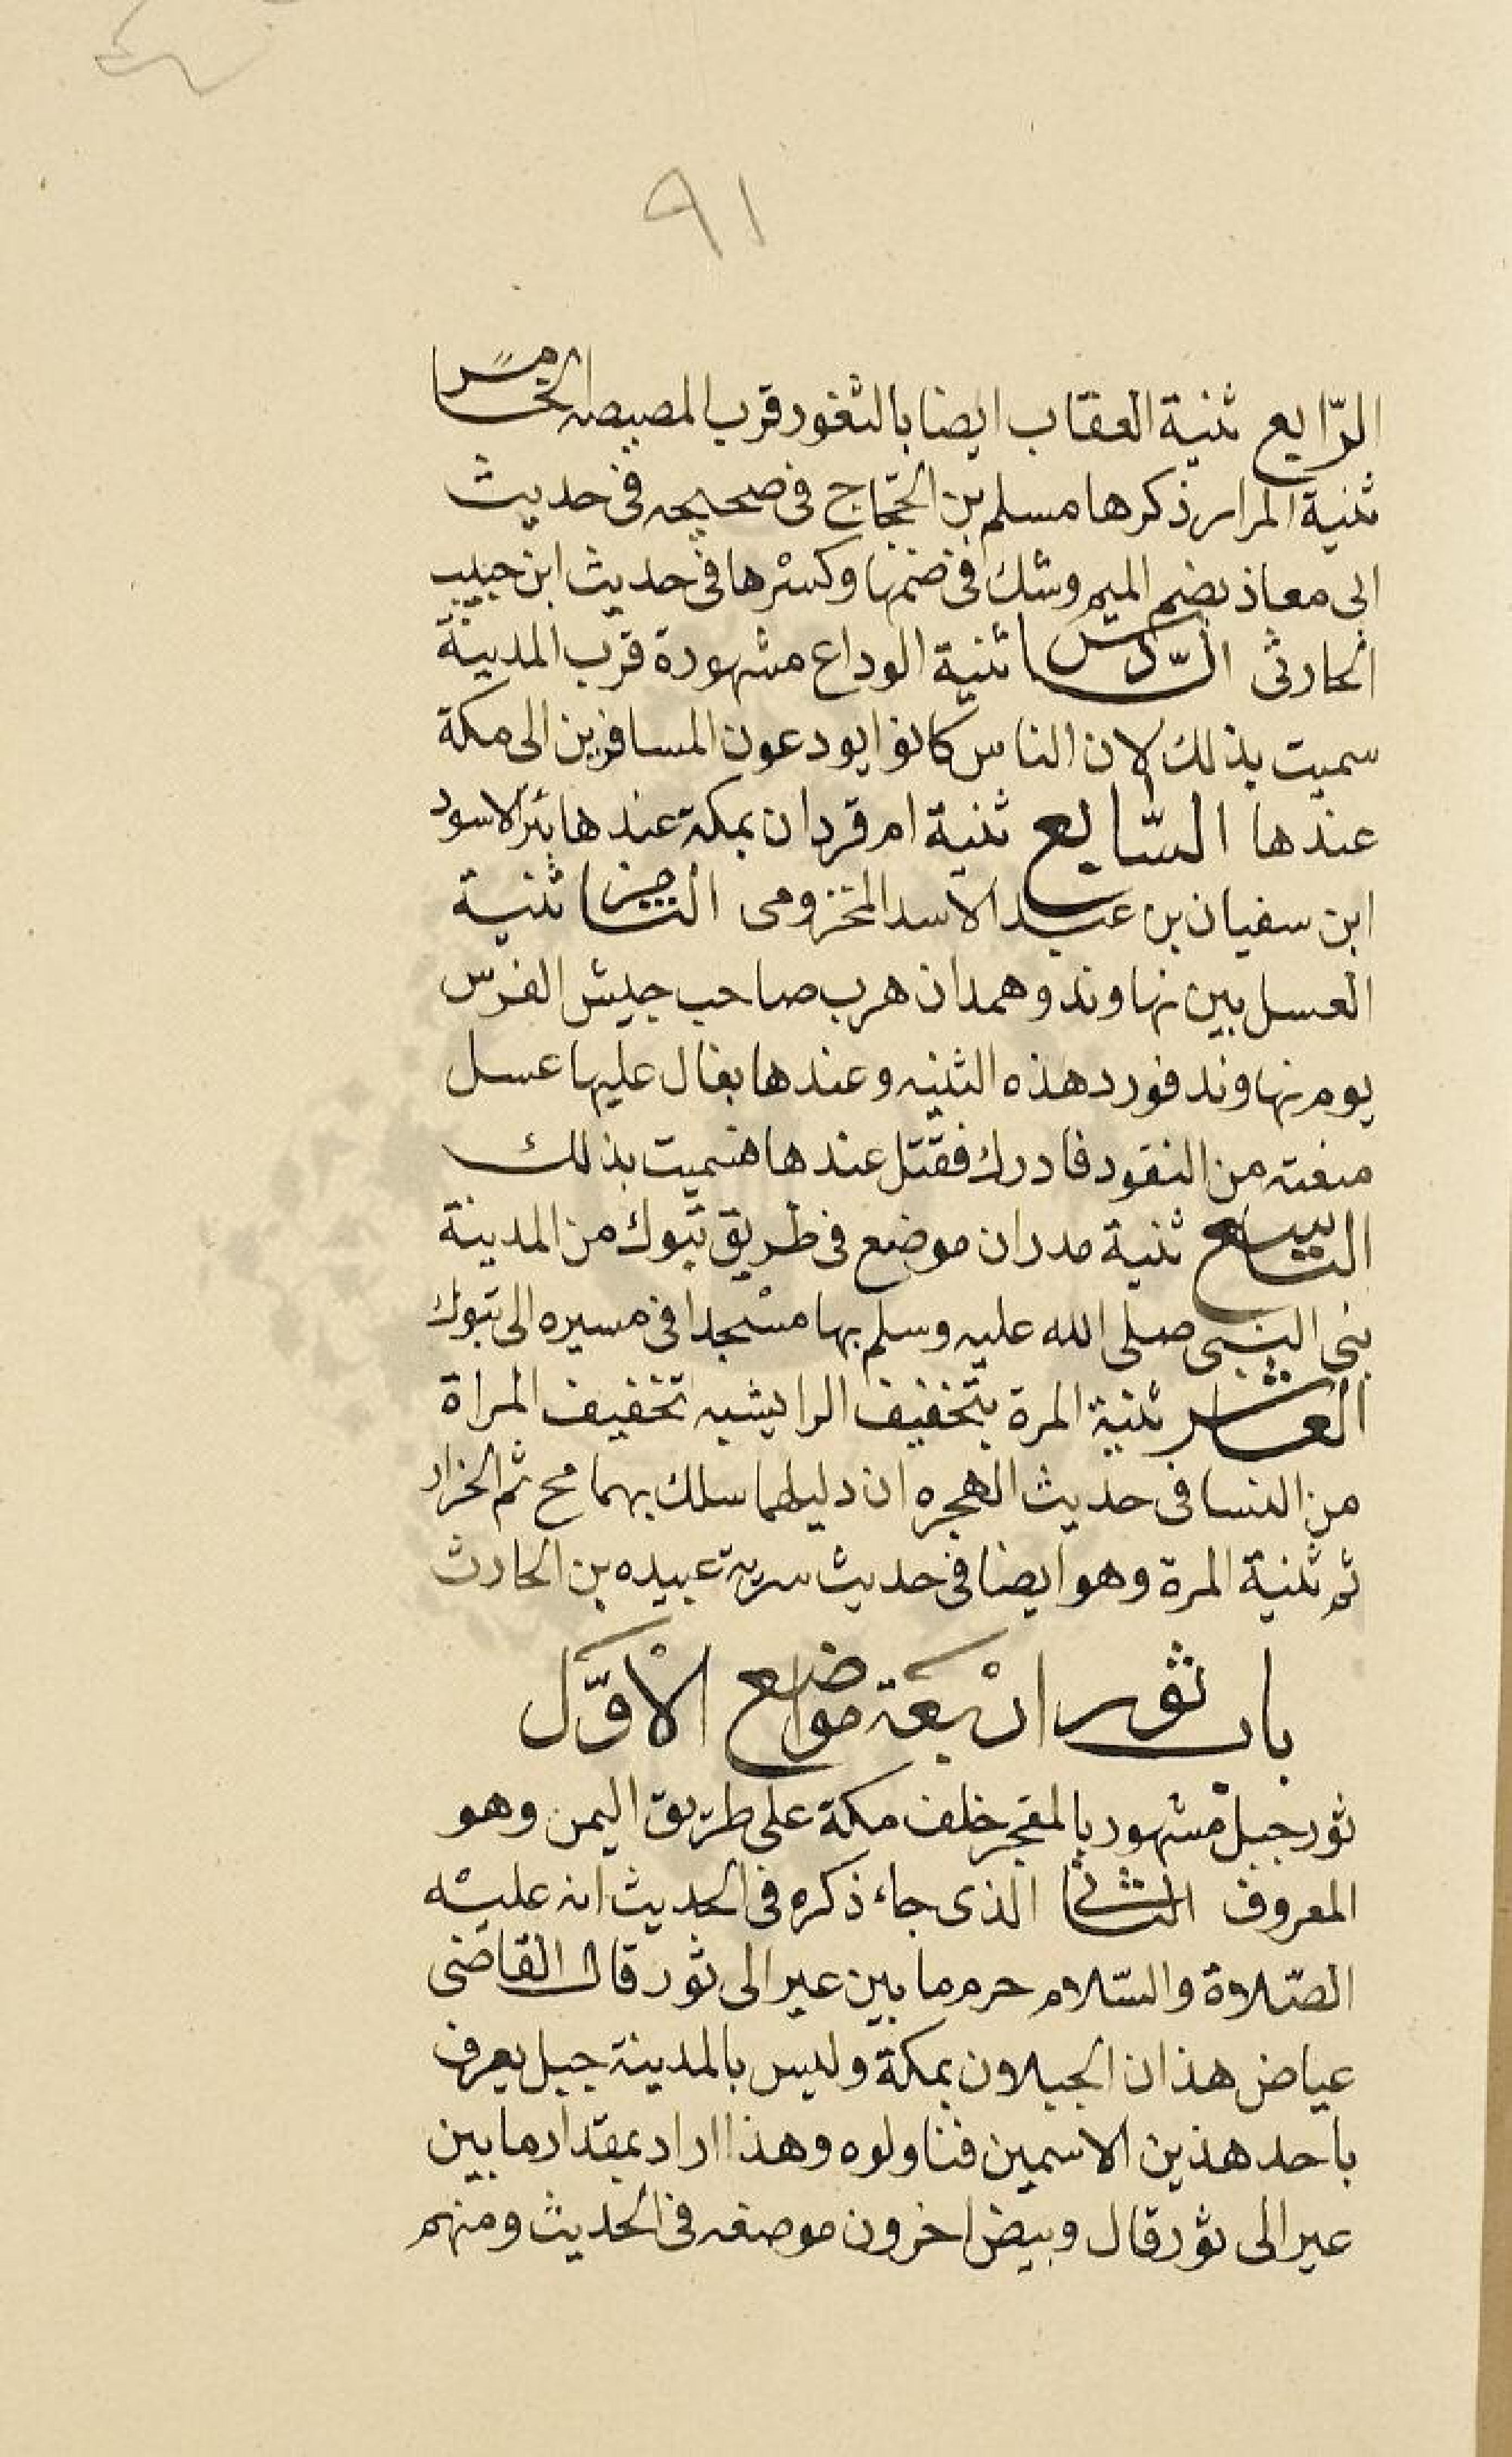 ٩١
الرّابع ثنية العقاب ايضا بالثغور قرب المصيصه الخامس
ثنية المرار ذكرها مسلم بن الحجّاج فى صحيحه فى حديث
ابى معاذ بضم الميم وشك فى ضمها وكسْرها فى حديث ابن حبيب
الحارثى السّادس ثنية الوداع مشهورة قرب المدينة
سميت بذلك لان الناس كانوا يودعون المسافرين الى مكة
عندها السّابع ثنية ام قردان بمكة عندها بئر الاسود
ابن سفيان بن عبد الاسد المخزومى الثامن ثنية
العسل بين نهاوند وهمدان هرب صاحب جيش الفرس
يوم نهاوند فورد هذه الثنيه وعندها بغال عليها عسل
منعته من النفود فادرك فقتل عندها فسميت بذلك
التاسع ثنية مدران موضع فى طريق تبوك من المدينة
بنى النبى صلى الله عليه وسلم بها مسْجدا فى مسيره الى تبوك
العاشر ثنية المرة بتخفيف الرا يشبه تخفيف المراة
من النسا فى حديث الهجره ان دليلهما سلك بهما مح ثم الخزار
ثم ثنية المرة وهو ايضا فى حديث سرية عبيده بن الحارث
باب ثور ارْبعة مواضع الاوّل
ثور جبل مشهور بالمفجر خلف مكة على طريق اليمن وهو
المعروف الثانى الذى جاء ذكره فى الحديث انه عليْه
الصّلاة والسّلام حرم ما بين عير الى ثور قال القاضى
عياض هذان الجبلان بمكة وليس بالمدينة جبل يعرف
باحد هذين الاسمين فتناولوه وهذا اراد بمقدار ما بين
عير الى ثور قال وبيض اخرون موضعه فى الحديث ومنهم